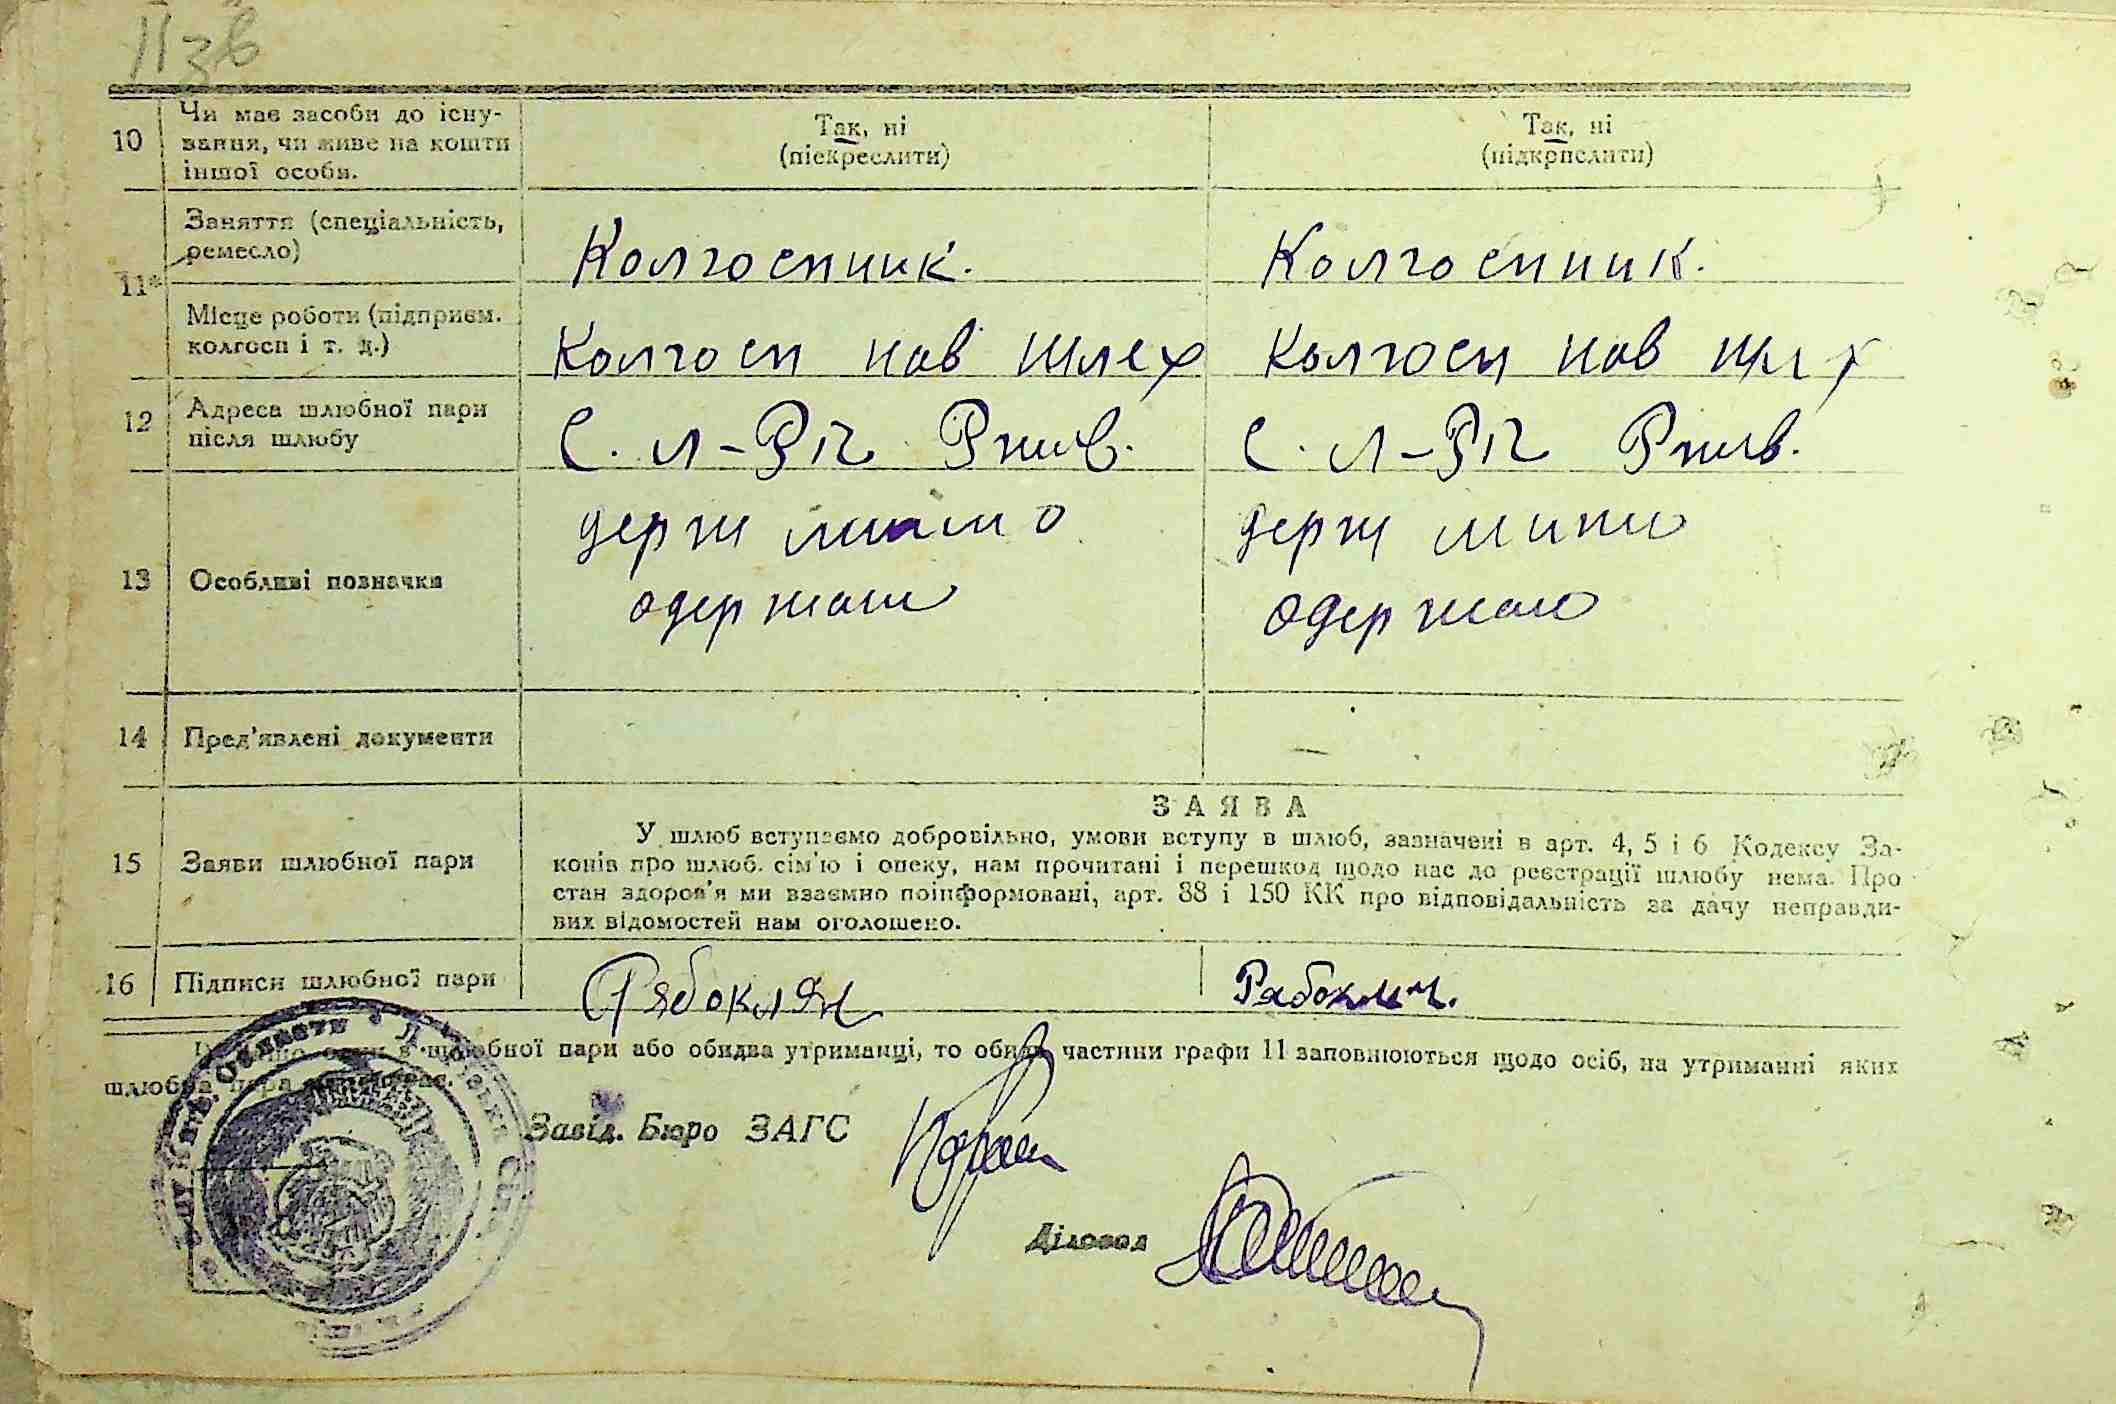 11зв
10
Чи має засоби до існу-
вання, чи живе на кошти
іншої особи.
Так, ні
(піскреслити)
Так, ні
(підкрпслити)
11*
Заняття (спеціальність,
ремесло)
Колгоспник.
Колгоспник.
Місце роботи (підприєм.
колгосп і т. д.)
Колгосп нов шлех
Колгосп нов шлх
12
Адреса шлюбної пари
після шлюбу
С. Л-Річ Ржив.
С. Л-Річ Ржив.
13
Особливі позначки
держ мито
держ мито
одержано
одержано
14
Пред'явлені документи
15
Заяви шлюбної пари
ЗАЯВА
У шлюб вступаємо добровільно, умови вступу в шлюб, зазначені в арт. 4, 5 і 6 Кодексу За-
конів про шлюб. сім'ю і опеку, нам прочитані і перешкод щодо нас до реєстрації шлюбу нема. Про
стан здоров'я ми взаємно поінформовані, арт. 88 і 150 КК про відповідальність за дачу неправди-
вих відомостей нам оголошено.
16
Підписи шлюбної пари
Рябоклян
Рабоклян.
шлюбної пари або обидва утриманці, то обидві частини графи 11 заповнюються щодо осіб, на утриманні яких
шлюбна пара
Завід. Бюро ЗАГС
Діловод
Області